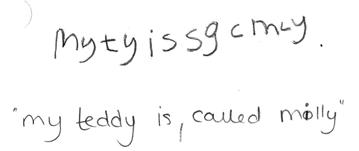 Mytyissgcmly.
"my teddy is, called milly"